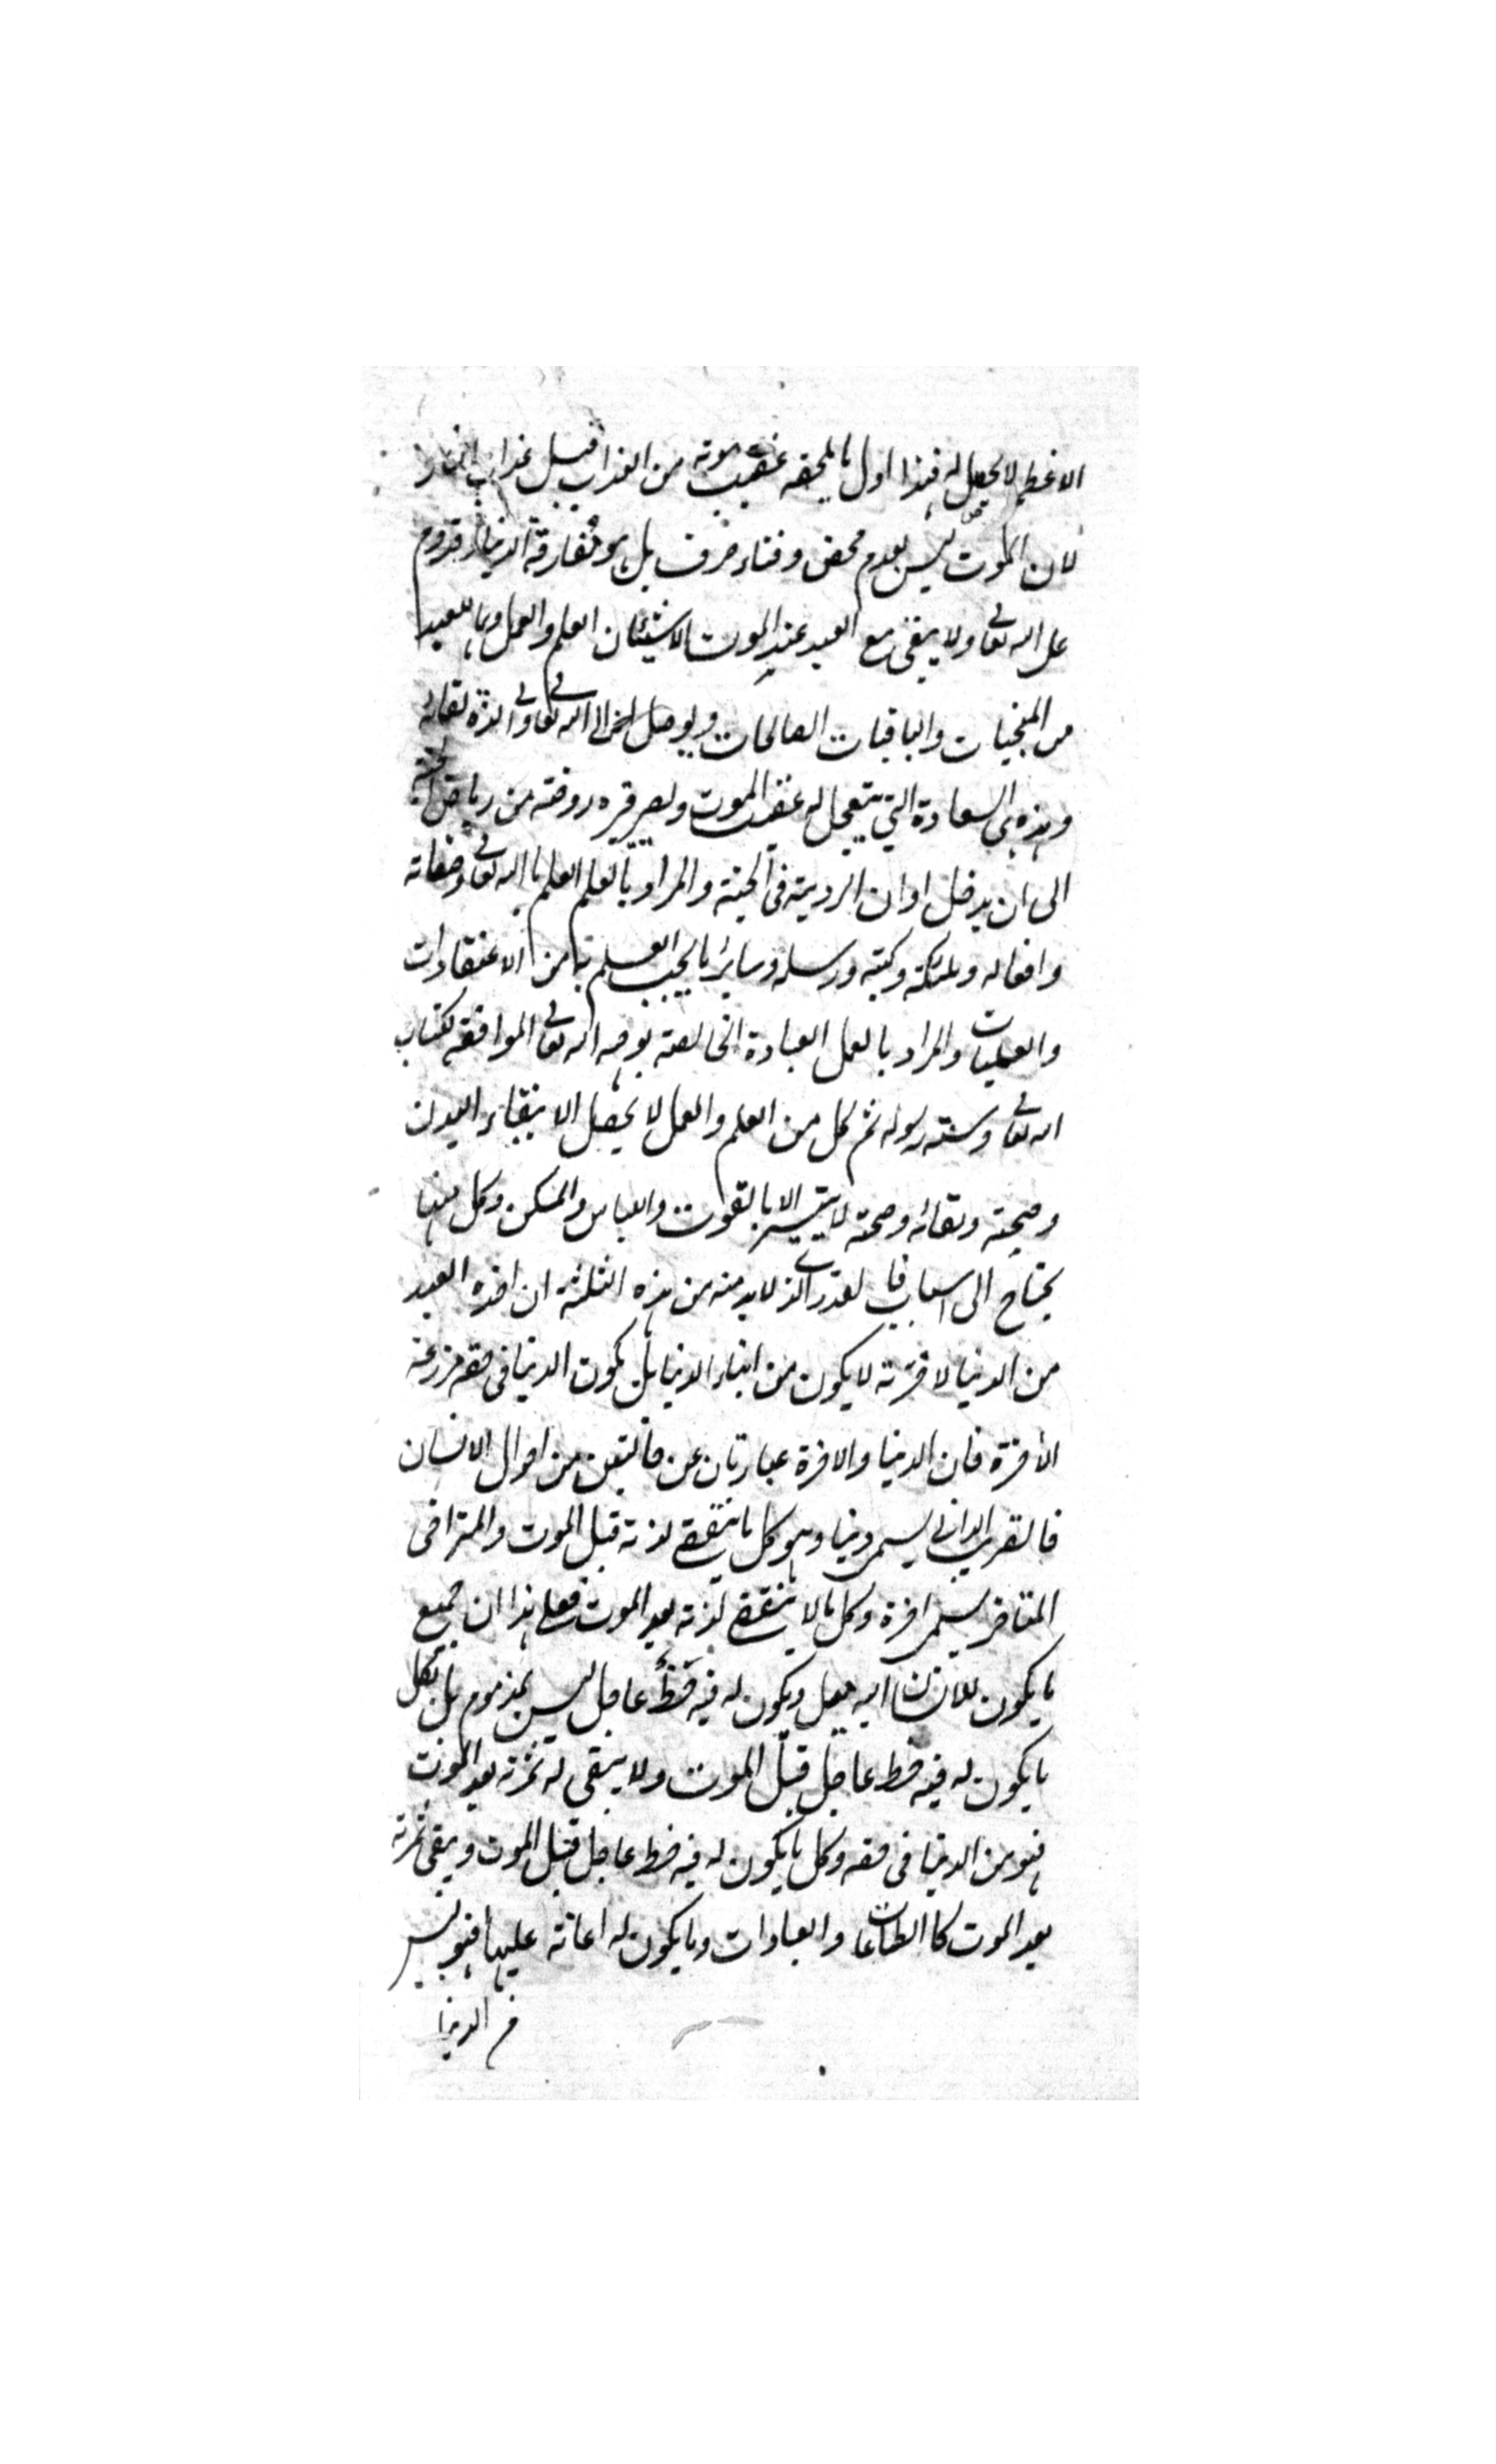 الاعظم لا يحصل له فهذا اول ما يلحقه عقيب موته من العذاب قبل عذاب النار
لان الموت ليس بعدم محض وفناء صرف بل هو مفارقة الدنيا وقدوم
على الله تعالى ولا يبقى مع العبد عند الموت الا شيئان العلم والعمل وهما للعبد
من المنجيات والباقيات الصالحات ويوصلان الى الله تعالى والى لذة لقائه
وهذه هي السعادة التي يتعجل له عقيب الموت ويصير قبره روضة من رياض الجنة
الى ان يدخل اوان الروية في الجنة والمراد بالعلم العلم بالله تعالى وصفاته
وافعاله وملئكته وكتبه ورسله وسائر ما يجب العلم بها من الاعتقادات
والعمليات والمراد بالعمل العبادة الخالصة لوجه الله تعالى الموافقة لكتاب
الله تعالى وسنة رسوله ثم كل من العلم والعمل لا يحصل الا ببقاء البدن
وصحته وبقائه وصحته لا يتيسر الا بالقوت واللباس والمسكن وكل منها
يحتاج الى اسباب فالقدر الذي لا بد منه من هذه الثلثة ان اخذه العبد
من الدنيا لاخرته لا يكون من ابناء الدنيا بل يكون الدنيا في حقه مزرعة
الاخرة فان الدنيا والاخرة عبارتان عن حالتين من احوال الانسان
فالقريب الداني يسمى دنيا وهو كل ما ينقضي لذته قبل الموت والمتراخي
المتاخر يسمى اخرة وكل ما لا ينقضي لذته بعد الموت فعلى هذا ان جميع
ما يكون للانسان اليه ميل ويكون له فيه حظ عاجل ليس بمذموم بل كل
ما يكون له فيه حظ عاجل قبل الموت ولا يبقى له ثمرته بعد الموت
فهو من الدنيا في حقه وكل ما يكون له فيه حظ عاجل قبل الموت ويبقى ثمرته
بعد الموت كالطاعات والعبادات وما يكون له اعانة عليها فهو ليس
من الدنيا